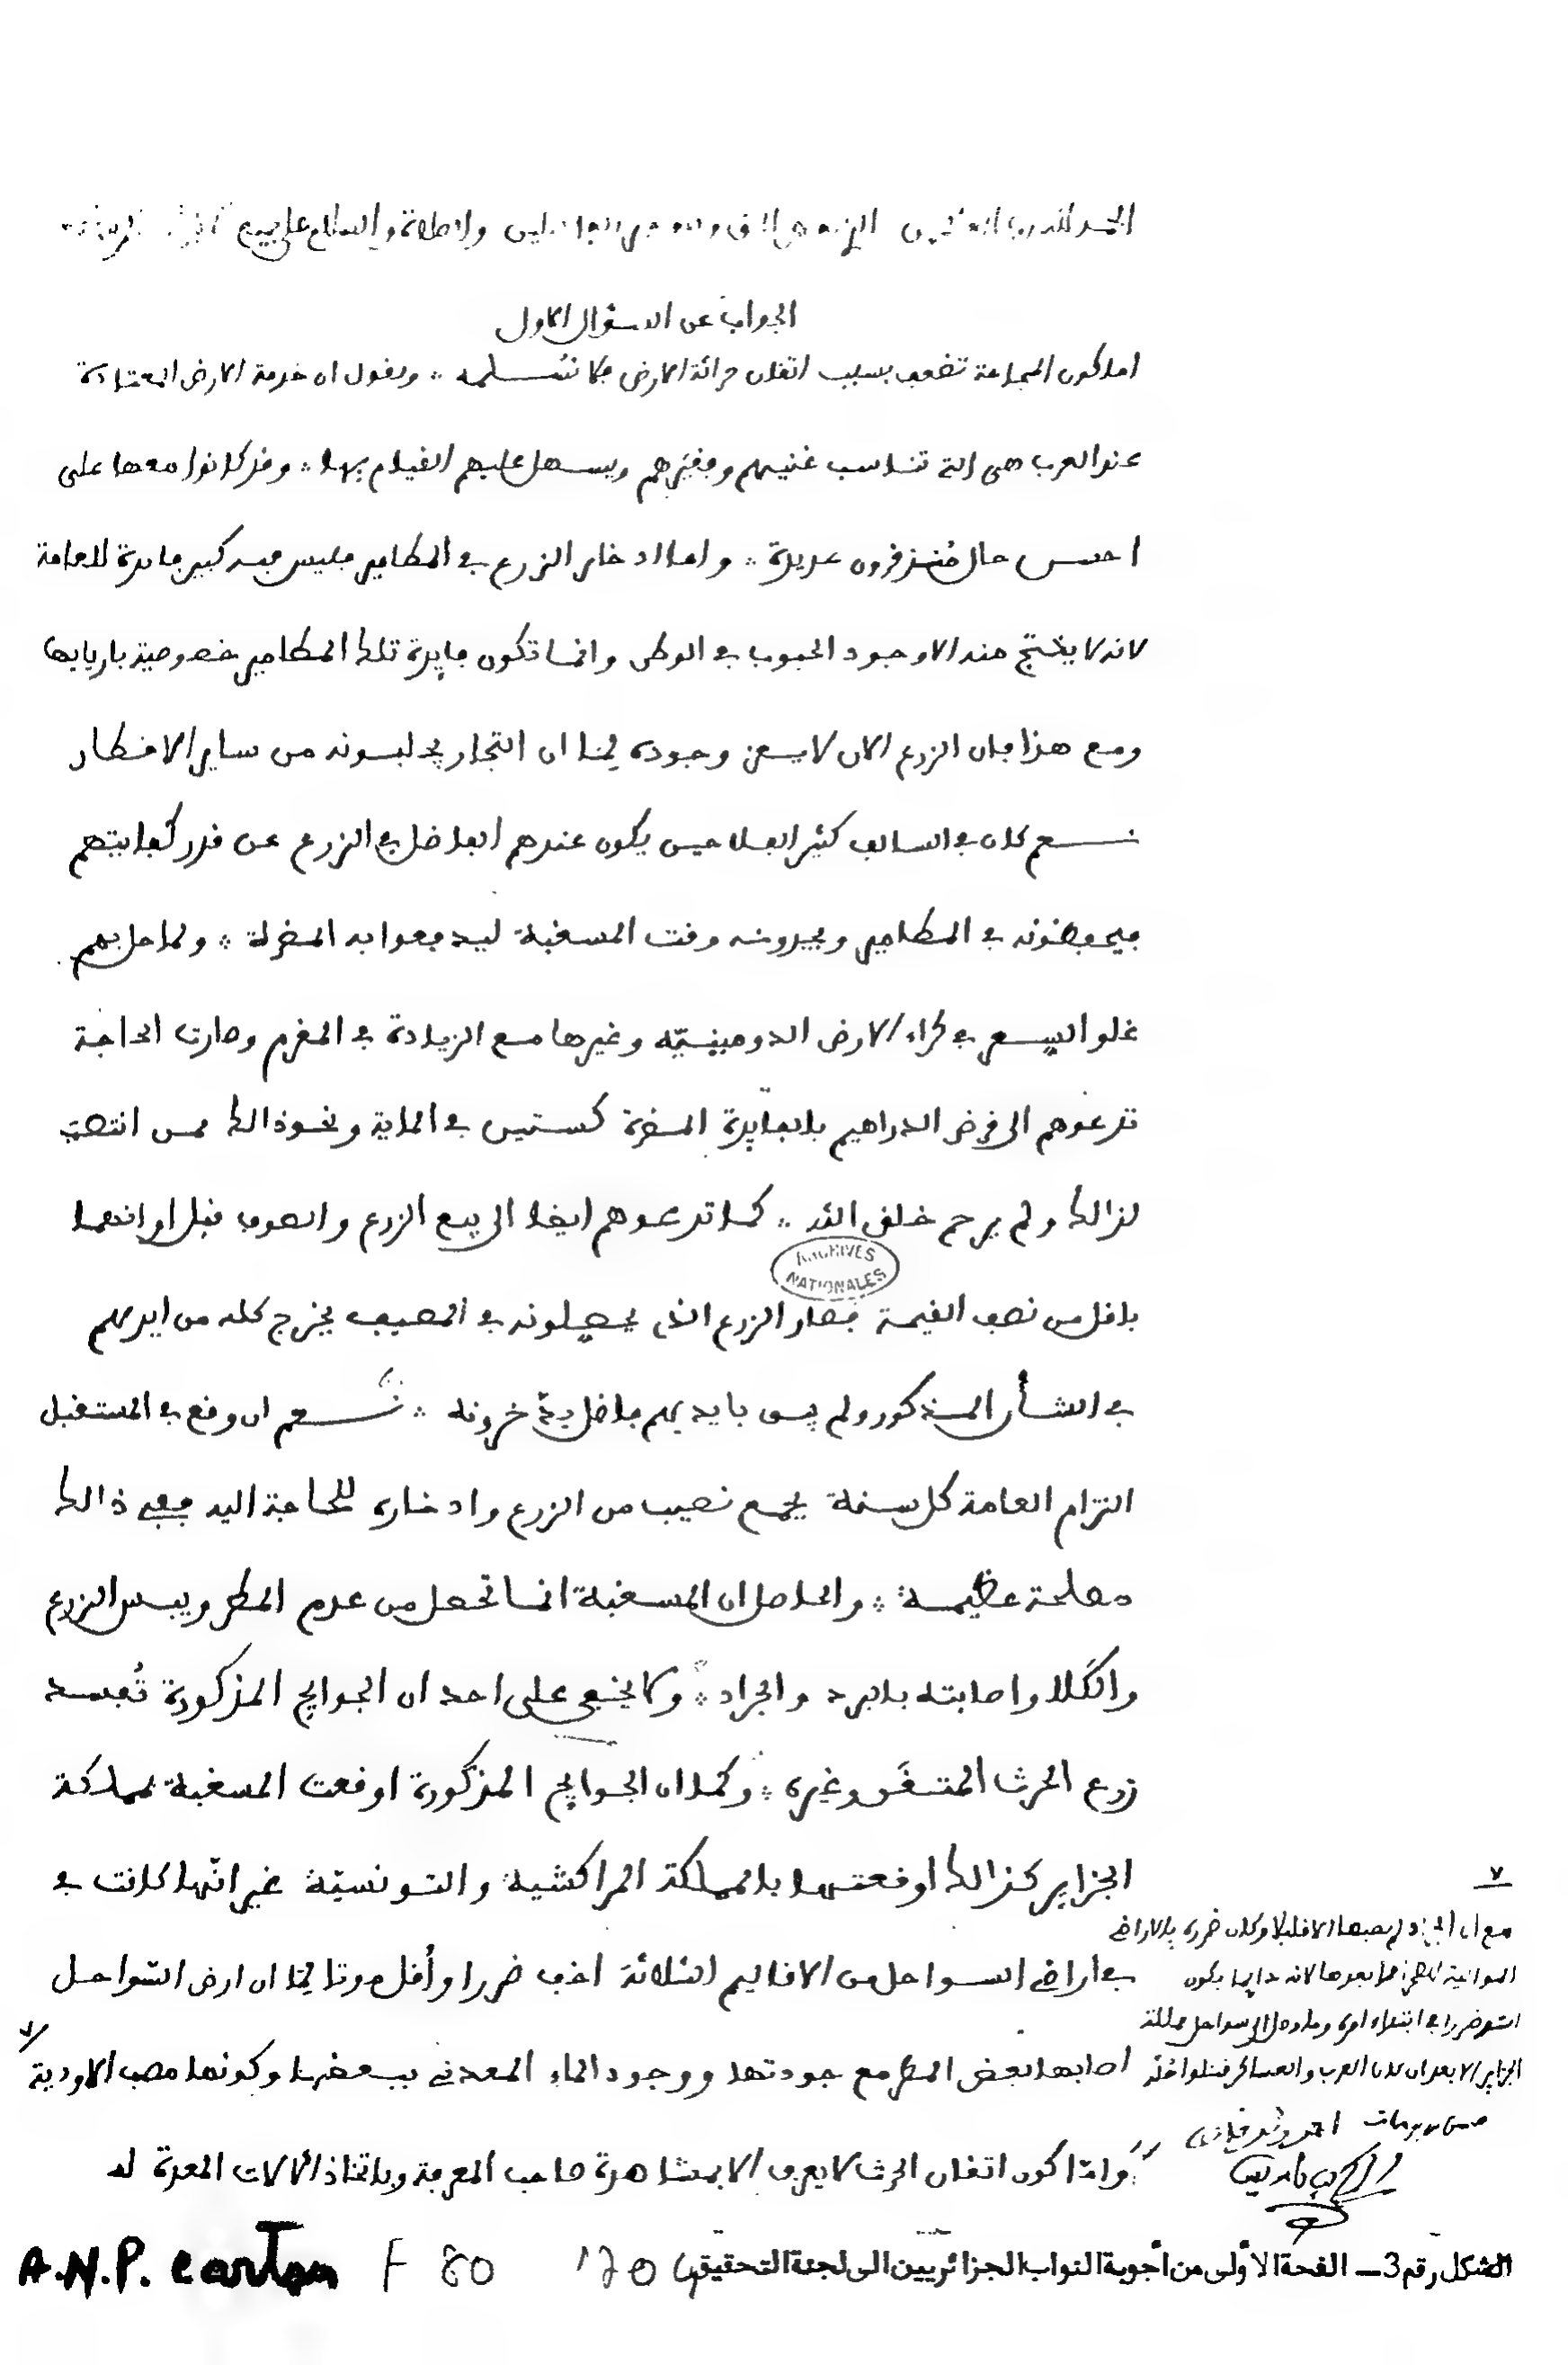 الحمد لله رب العالمين والصلاة والسلام على
الجواب عن السؤال الاول
اما كون المجاعة تضعف بسبب اتقان حراثة الارض فلا نسلمه ∴ ونقول ان خدمة الارض المعتادة
عند العرب هي التي تناسب غنيهم وفقيرهم ويسهل عليهم القيام بها ∴ وقد كانوا معها على
احسن حال منذ قرون عديدة ∴ واما ادخار الزرع في المطامير فليس فيه كبير فايدة للعامة
لانه لا ينتج منه الا وجود الحبوب في الوطن وانما تكون فايدة تلك المطامير خصوصية باربابها
ومع هذا فان الزرع الان لا يعز وجوده لما ان التجار يجلبونه من ساير الاقطار
نعم كان في السالف كثير الفلاحين يكون عندهم الفاضل في الزرع عن قدر كفايتهم
فيحفظونه في المطامير ويجدونه وقت المسغبة ليدفعوا به المضرة ∴ ولما حل بهم
غلو البيع في كراء الارض الدومينية وغيرها مع الزيادة في المغرم وصارت الحاجة
تدعوهم الى قرض الدراهم بالفايدة المضرة كستين في الماية ونحو ذالك ممن انتصب
لذالك ولم يرحم خلق الله ∴ كما تدعوهم ايضا الى بيع الزرع والصوف قبل اوانهما
ARCHIVES NATIONALES
باقل من نصف القيمة فصار الزرع الذي يحصلونه في المصيف يخرج كله من ايديهم
في الشأن المذكور ولم يبق بايديهم فاضل يدخرونه ∴ نعم ان وقع في المستقبل
التزام العامة كل سنة بجمع نصيب من الزرع وادخاره للحاجة اليه ففي ذالك
مصلحة عظيمة ∴ والحاصل ان المسغبة انما تحصل من عدم المطر ويبس الزرع
والكلا واصابته بالبرد والجراد ∴ ولا يخفى على احد ان الجوايح المذكورة تفسد
زرع الحرث المتقن وغيره ∴ وكما ان الجوايح المذكورة اوقعت المسغبة بمملكة
الجزاير كذالك اوقعتها بالمملكة المراكشية والتونسية غير انها كانت في
في اراضي السواحل من الاقاليم الثلاثة اخف ضررا واقل موتا لما ان ارض السواحل
اصابها بعض المطر مع جودتها ووجود الماء المعدني ببعضها وكونها مصب الاودية
∴ واما كون اتقان الحرث لا يعرف الا بمشاهدة صاحب المعرفة وباتخاذ الالات المعدة له
٧
مع ان الجراد لم يصبها الا قليلا وكان ضرره بالاراضي
لانه دايما يكون
اشد ضررا في ابتداء امره وما وصل الى سواحل عمالة
الجزاير الا بعد ان كان العرب والعساكر قتلوا اقله
حسن بن بريهمات احمد ولد قاضي
الشكل رقم 3 ــ الفحة الأولى من أجوبة النواب الجزائريين الى لجنة التحقيق
A.N.P. carton F 80